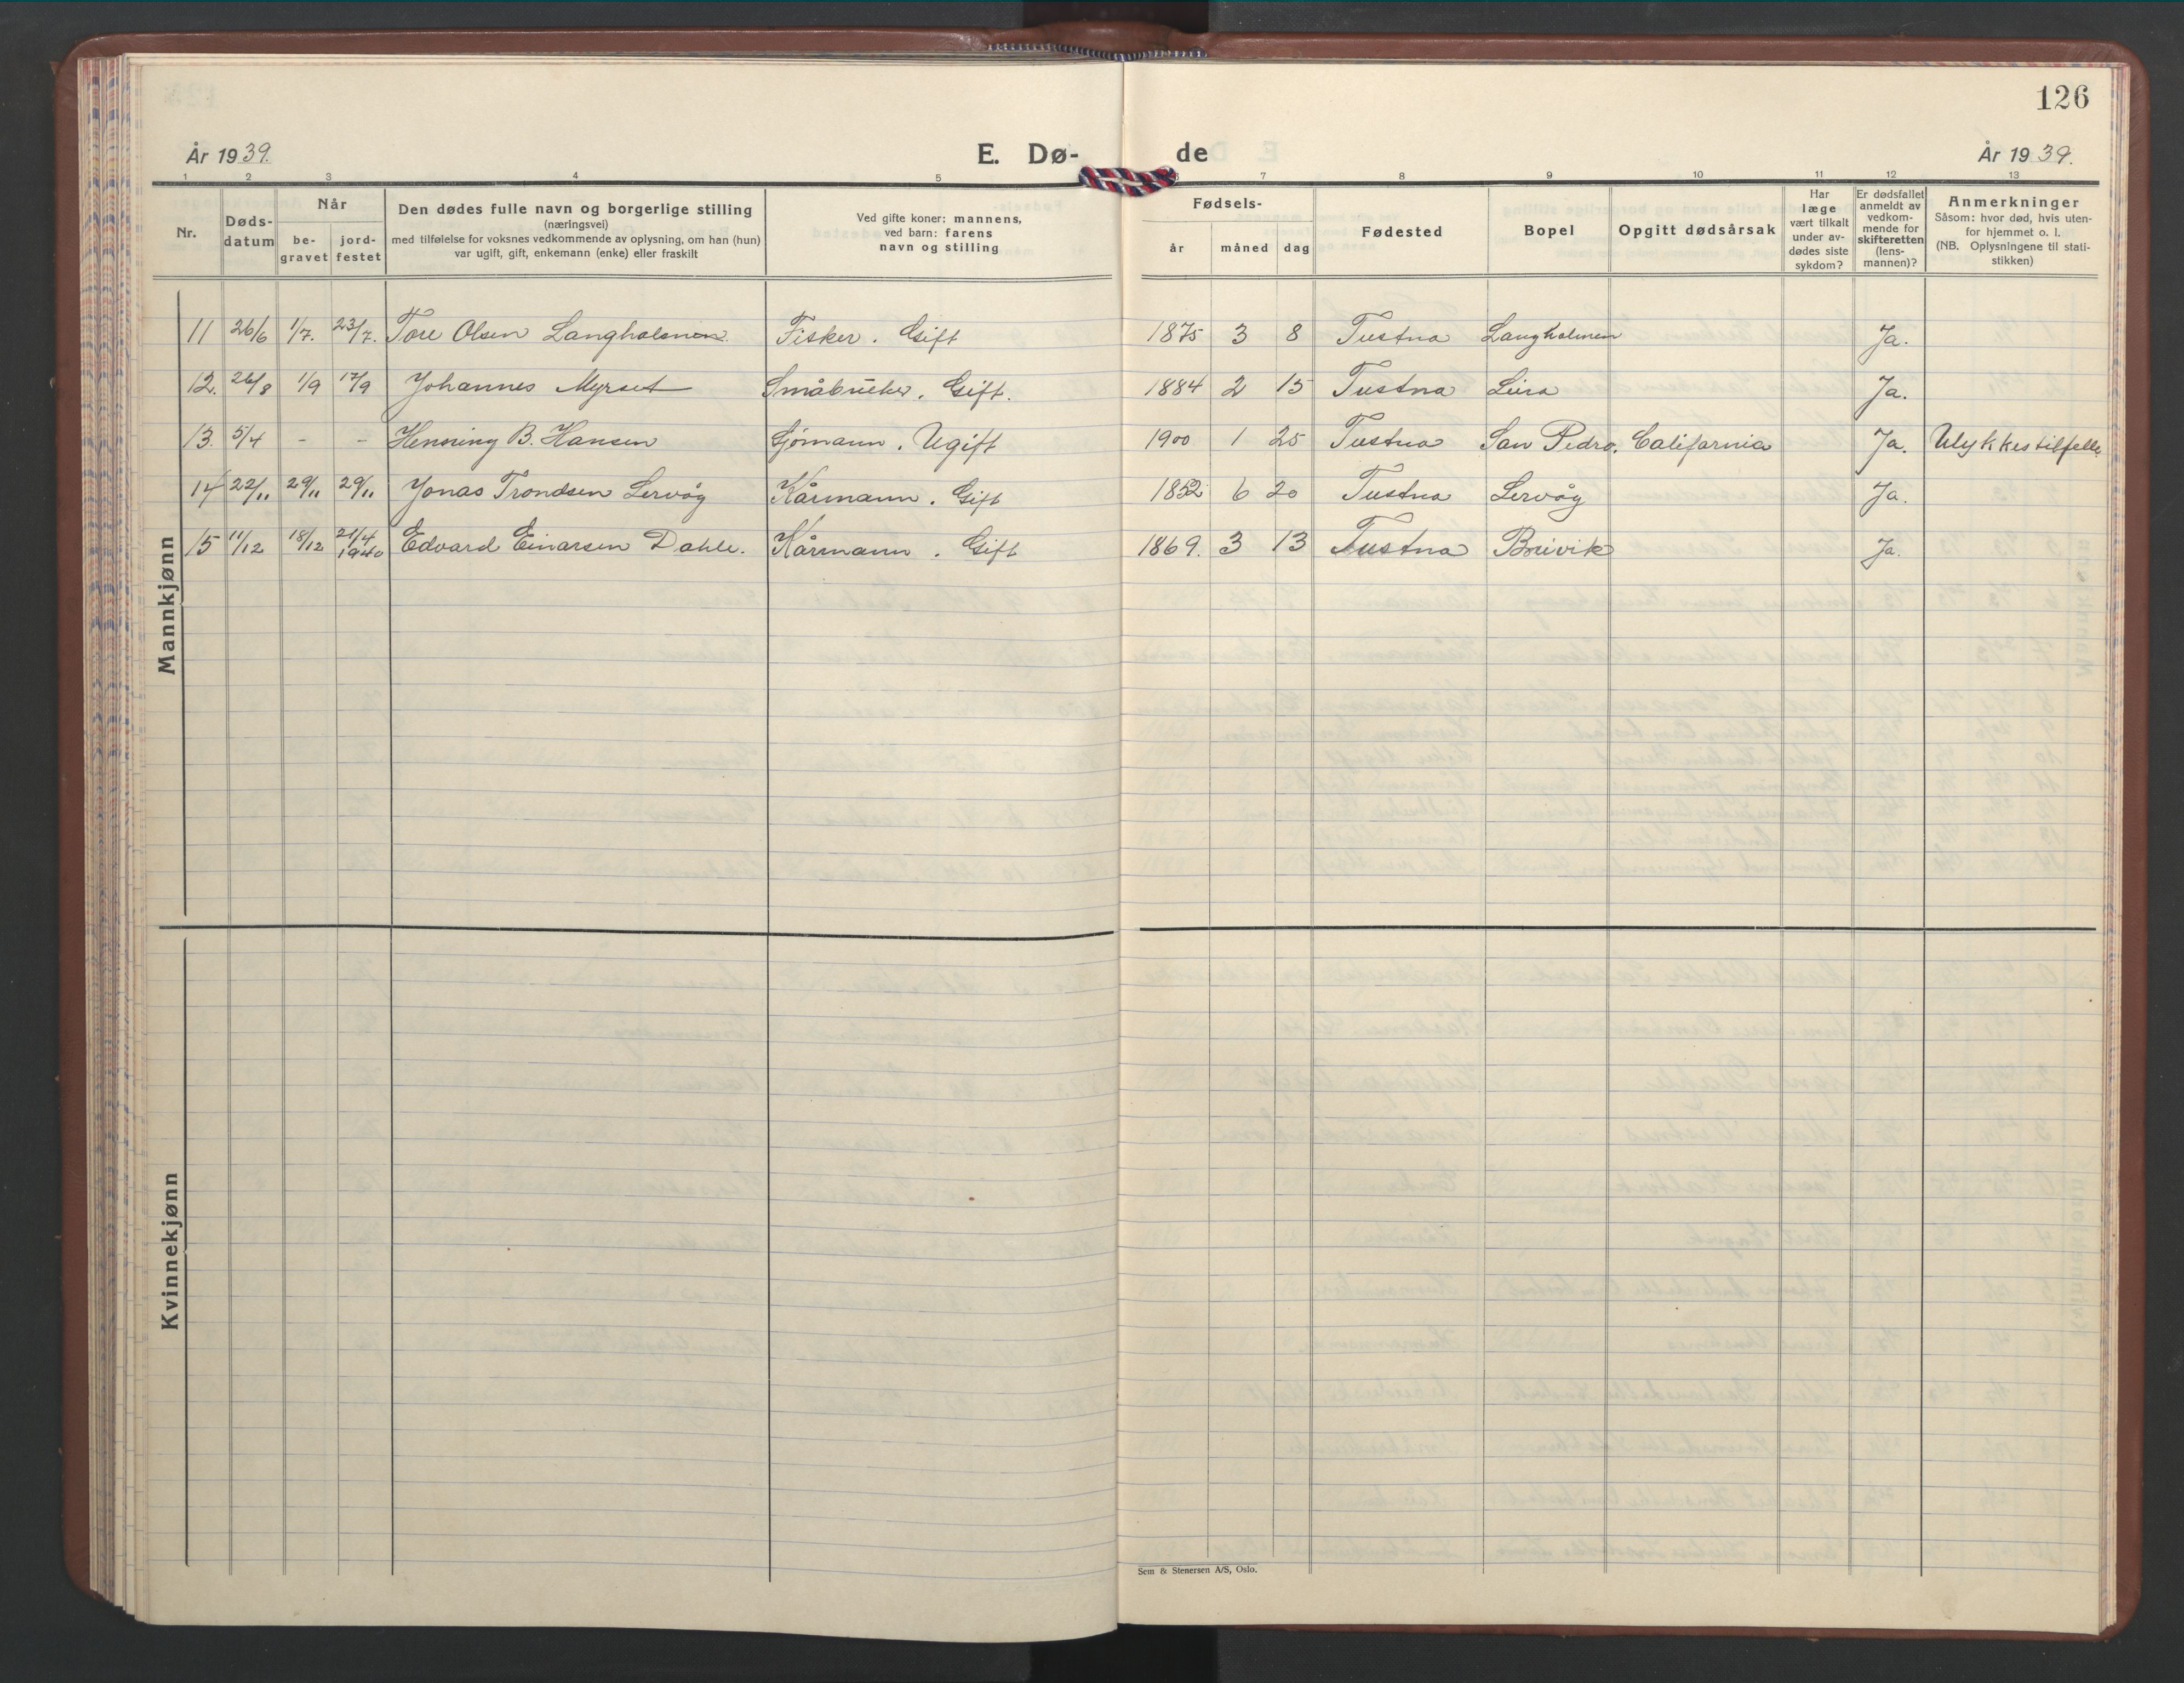 126
År 1939. E. Dø- de År 1939.
1 2 3 4 5 6 7 8 9 10 11 12 13
Nr.
Døds-
datum
Når
be-
gravet
jord-
festet
Den dødes fulle navn og borgerlige stilling
(næringsvei)
med tilføielse for voksnes vedkommende av oplysning, om han (hun)
var ugift, gift, enkemann (enke) eller fraskilt
Ved gifte koner: mannens,
ved barn: farens
navn og stilling
Fødsels-
år måned dag
Fødested
Bopel
Opgitt dødsårsak
Har
læge
vært tilkalt
under av-
dødes siste
sykdom?
Er dødsfallet
anmeldt av
vedkom-
mende for
skifteretten
(lens-
mannen)?
Anmerkninger
Såsom: hvor død, hvis uten-
for hjemmet o. l.
(NB. Oplysningene til stati-
stikken)
Mannkjønn
11 26/6 1/7. 23/7. Tore Olsen Langholmen. Fisker. Gift 1875 3 8 Tustna Langholmen Ja.
12. 26/8 1/9 17/9 Johannes Myrset Småbruker. Gift. 1884 2 15 Tustna Leira Ja.
13. 5/4 - - Henning B. Hansen Sjømann. Ugift 1900 1 25 Tustna San Pedro, California Ja. Ulykkestilfelle
14 22/11 29/11 29/11 Jonas Trondsen Lervåg Kårmann. Gift 1852 6 20 Tustna Lervåg Ja.
15 11/12 18/12 21/4 1940 Edvard Einarsen Dahle. Kårmann. Gift 1869. 3 13 Tustna Breivik Ja.
Kvinnekjønn
Sem & Stenersen A/S, Oslo.